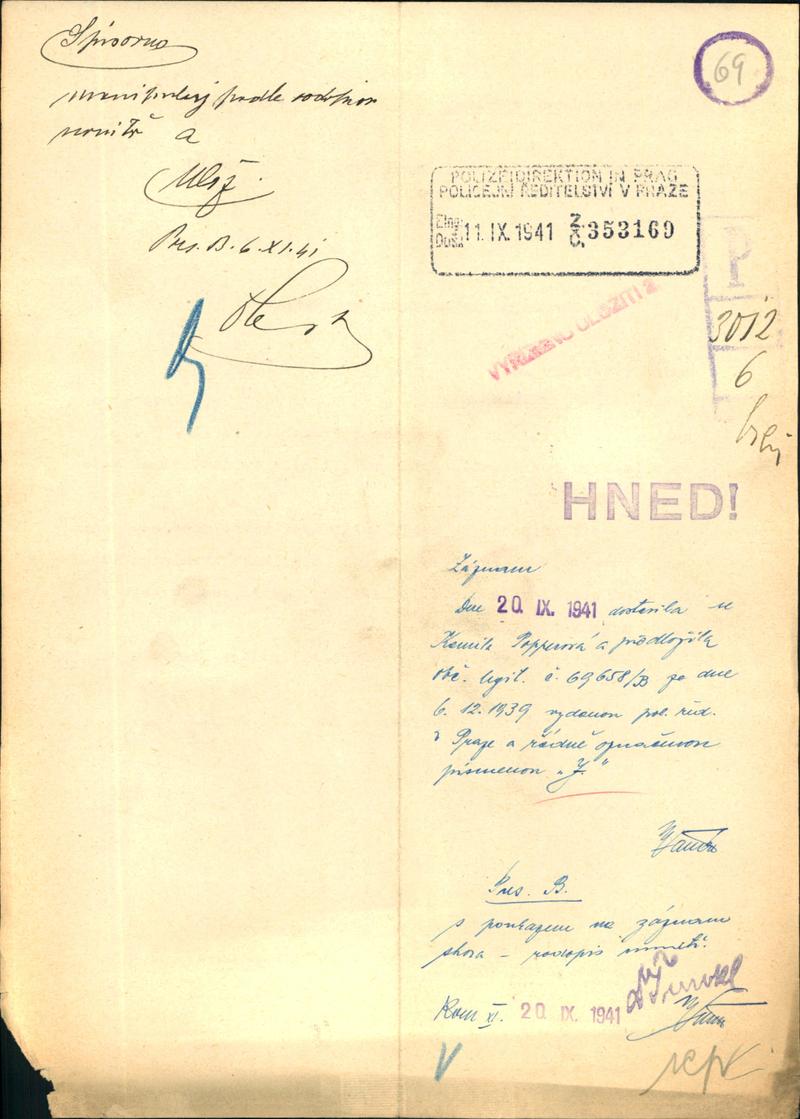 Spisovna
manipuluj podle
a
Ulož.
Pres. B. 6. XI. 41
69
POLIZEIDIREKTION IN PRAG
POLICEJNÍ ŘEDITELSTVÍ V PRAZE
Eing.
Došl. 11. IX. 1941 353169
P
3012
6
VYŘÍZENO ULOŽITI
HNED!
Záznam
Dne 20. IX. 1941 dostavila se
Kamila Popperová a předložila
obč. legit. č. 69658/B ze dne
6. 12. 1939 vydanou pol. řed.
v Praze a řádně označenou
písmenem „J."
Pres. B.
s poukazem na záznam
shora –
Kom XI. 20. IX. 1941